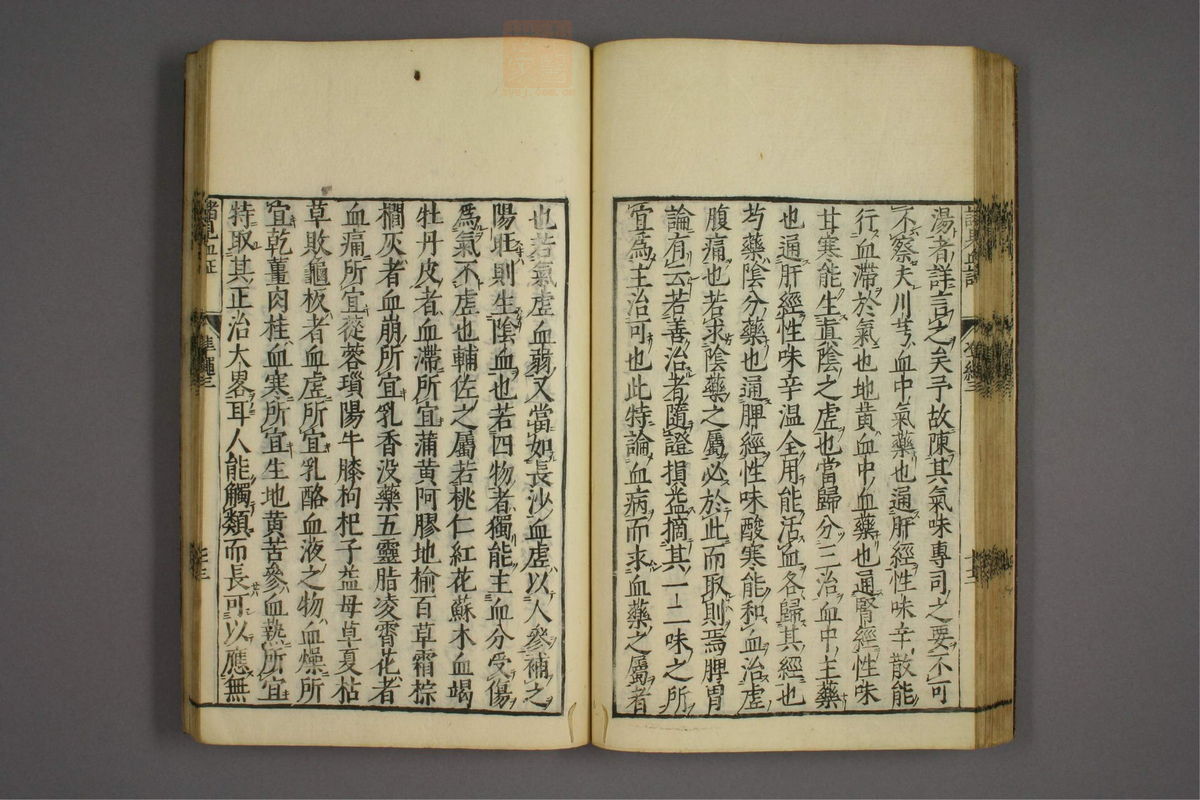 湯者詳言之矣予故陳其氣味專司之要不可
不察夫川芎血中氣藥也通肝經性味辛散能
行血滯於氣也地黃血中血藥也通腎經性味
甘寒能生眞陰之虛也當歸分三治血中主藥
也通肝經性味辛温全用能活血各歸其經也
芍藥陰分藥也通脾經性味酸寒能和血治虛
腹痛也若求陰藥之屬必於此而取則焉脾胃
論有云若善治者隨證損益摘其一二味之所
宜爲主治可也此特論血病而求血藥之屬者
也若氣虛血弱又當如長沙血虛以人參補之
陽旺則生陰血也若四物者獨能主血分受傷
爲氣不虛也輔佐之屬若桃仁紅花蘇木血竭
牡丹皮者血滯所宜蒲黃阿膠地榆百草霜棕
櫚灰者血崩所宜乳香没藥五靈脂凌霄花者
血痛所宜蓯蓉瑣陽牛膝枸杞子益母草夏枯
草敗龜板者血虛所宜乳酪血液之物血燥所
宜乾薑肉桂血寒所宜生地黃苦參血熱所宜
特取其正治大畧耳人能觸類而長可以應無
諸見血証
準繩三